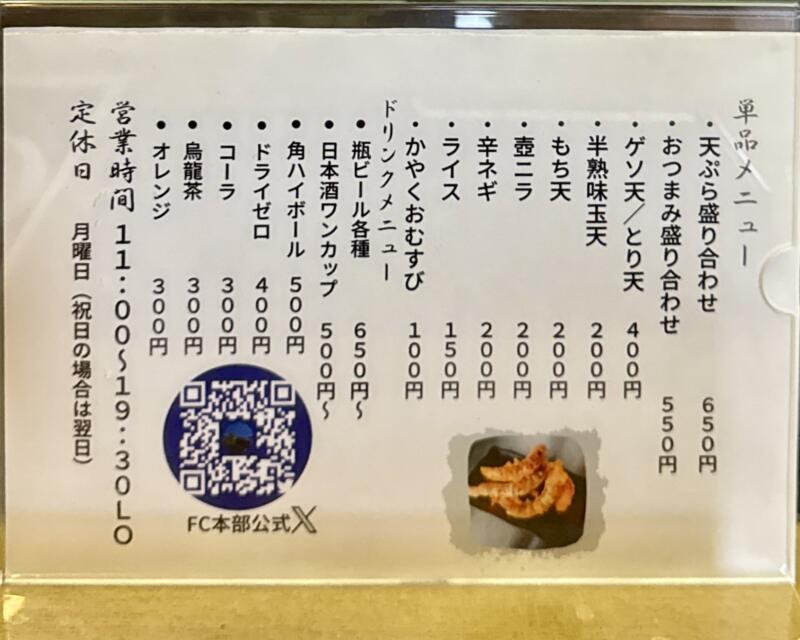 単品メニュー
・天ぷら盛り合わせ 650円
・おつまみ盛り合わせ 550円
・ゲソ天/とり天 400円
・半熟味玉天 200円
・もち天 200円
・壺ニラ 200円
・辛ネギ 200円
・ライス 150円
・かやくおむすび 100円
ドリンクメニュー
●瓶ビール各種 650円~
●日本酒ワンカップ 500円~
●角ハイボール 500円
●ドライゼロ 400円
●コーラ 300円
●烏龍茶 300円
●オレンジ 300円
営業時間 11:00~19:30LO
定休日 月曜日(祝日の場合は翌日)
FC本部公式X